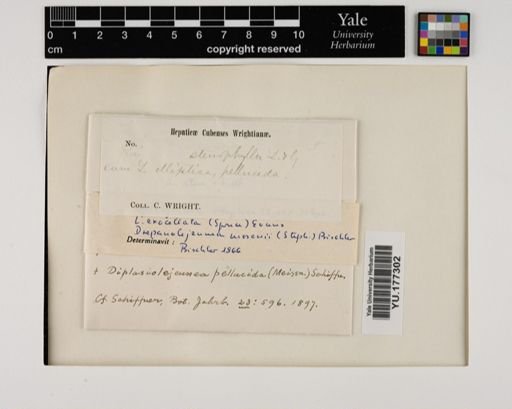 0 1 2 3 4 5 6 7 8 9 10
cm
copyright reserved
Yale
University
Herbarium
Hepaticæ Cubenses Wrightianæ.
No.
stenophylla L. & G
cum L. elliptica, pellucida
COLL. C. WRIGHT.
L. exellata (Spruce) Evans
Drepanolejeunea mosenii (Steph.) Bischler
Determinavit:
Bischler 1966
+ Diplasiolejeunea pellucida (Meissn.) Schiffn.
Cf Schiffner, Bot. Jahrb. 23: 596. 1897.
Yale University Herbarium
YU.177302